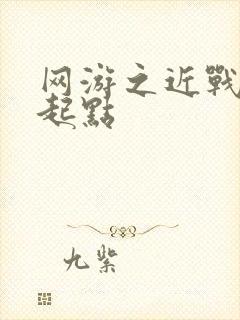 网游之近戰
起點
九紫